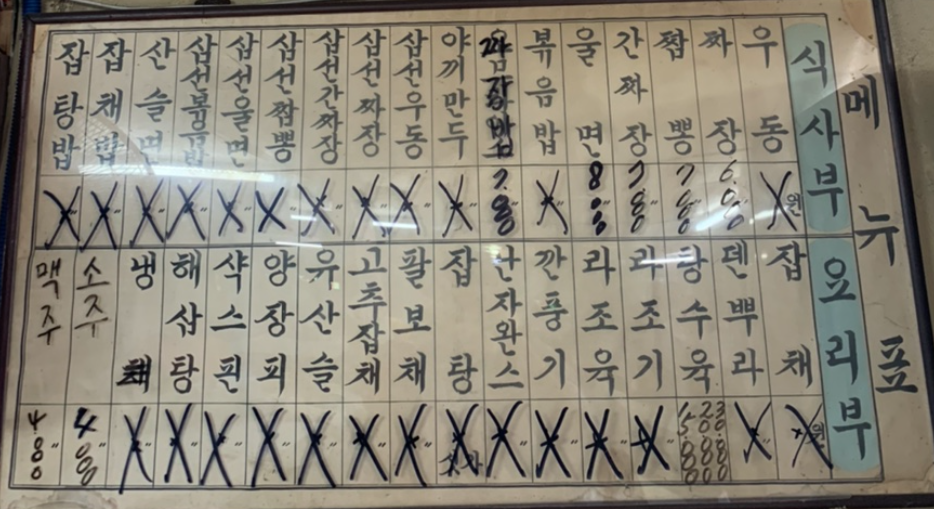 메뉴표
식사부
우동 원
짜장 6.000
짬뽕 7.000
간짜장 7.000
울면 8.000
볶음밥
짜장밥 7.000
야끼만두
삼선우동
삼선짜장
삼선간짜장
삼선짬뽕
삼선울면
삼선볶음밥
산슬면
잡채밥
잡탕밥
요리부
잡채 원
덴뿌라
탕수육
라조기
라조육
깐풍기
난자완스
잡탕
팔보채
고추잡채
유산슬
양장피
샥스핀
해삼탕
냉채
소주 4.000
맥주 4.000